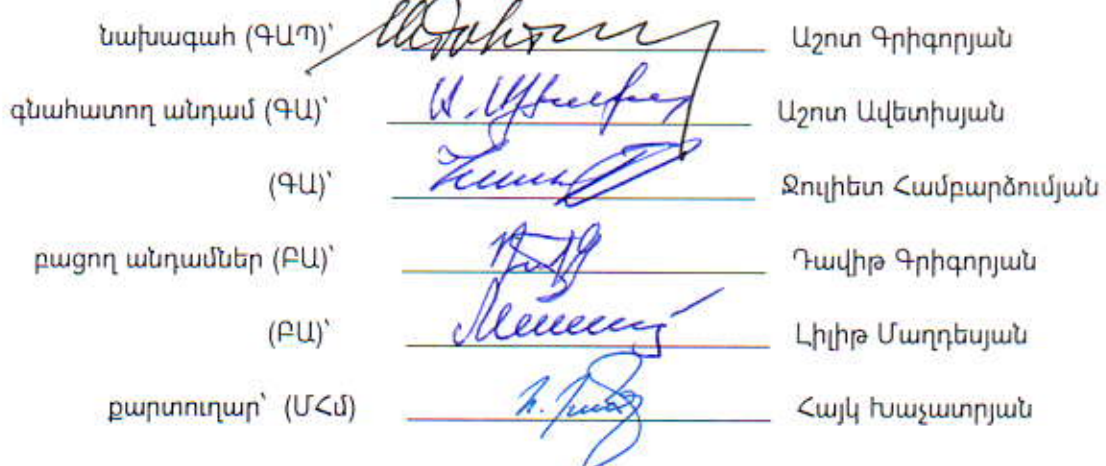 նախագահ (ԳԱՊ)՝ Աշոտ Գրիգորյան
գնահատող անդամ (ԳԱ)՝ Աշոտ Ավետիսյան
(ԳԱ)՝ Ջուլիետ Համբարձումյան
բացող անդամներ (ԲԱ)՝ Դավիթ Գրիգորյան
(ԲԱ)՝ Լիլիթ Մաղդեսյան
քարտուղար՝ (ՄՀմ) Հայկ Խաչատրյան